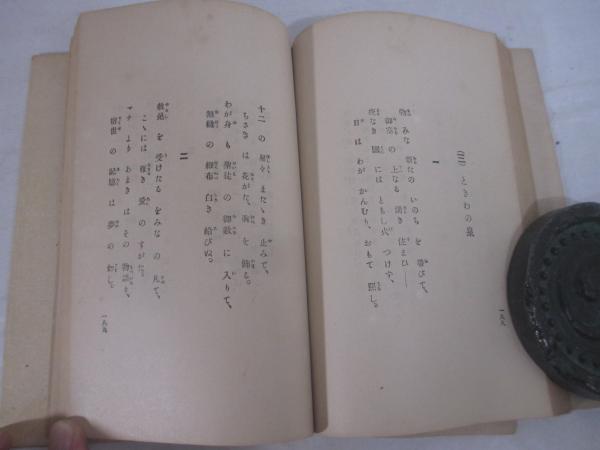 (三) ときわの泉
一
物みな新たの いのち を 帯びて、
御座の 上なる 清き 住まひ——
夜なき 國 には ともし火 つけず、
日 は わが かんむり、おもて 照し。
一八八
十二 の 星々 またゝき 止みて、
ちさき は 花がた、胸 を 飾る。
わが身 も 聖徒 の 御數 に 入りて、
細布 白き 結びぬ。
二
赦免 を 受けたる をみな の 凡て、
こゝには 尊き 愛 の すが
マナ より あまき は その 物語 と、
宿世 の 記憶 は 夢 の 如し。
一八九